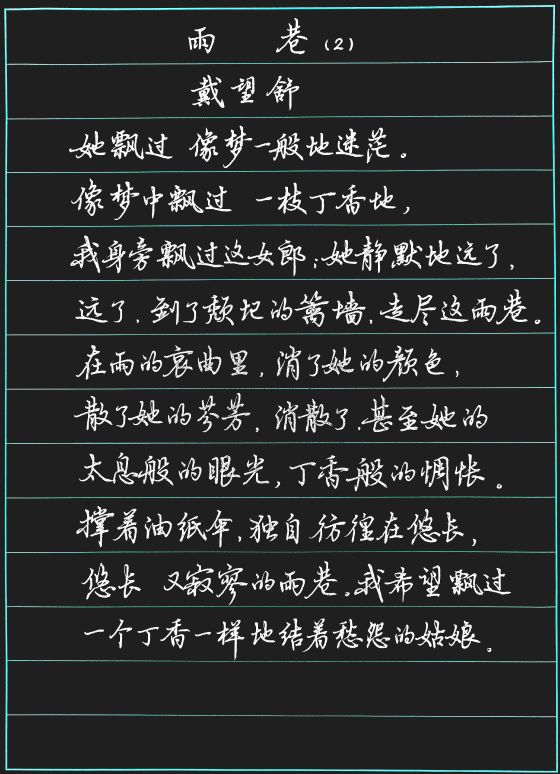 雨 巷（2）
戴望舒
她飘过 像梦一般地迷茫。
像梦中飘过 一枝丁香地，
我身旁飘过这女郎；她静默地远了，
远了，到了颓圮的篱墙，走尽这雨巷。
在雨的哀曲里，消了她的颜色，
散了她的芬芳，消散了，甚至她的
太息般的眼光，丁香般的惆怅。
撑着油纸伞，独自彷徨在悠长，
悠长 又寂寥的雨巷，我希望飘过
一个丁香一样地结着愁怨的姑娘。